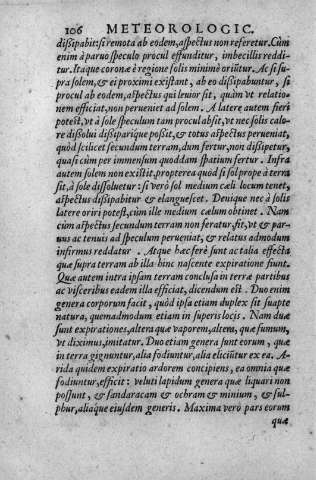 106 METEOROLOGIC.
dißipabit: si remota ab eodem, aspectus non referetur. Cùm
enim à paruo speculo procul effunditur, imbecillis reddi-
tur. Itaque coronæ è regione solis minimè oriũtur. Ac si su-
pra solem, & ei proximi existant, ab eo dißipabuntur, si
procul ab eodem, aspectus qui leuior sit, quàm vt relatio-
nem efficiat, non perueniet ad solem. A latere autem fieri
potest, vt à sole speculum tam procul absit, vt nec solis calo-
re dißolui dißiparique poßit, & totus aspectus perueniat,
quòd scilicet secundum terram, dum fertur, non dißipetur,
quasi cùm per immensum quoddam spatium fertur. Infra
autem solem non existit, propterea quòd si sol prope à terra
sit, à sole dissoluetur: si verò sol medium cæli locum tenet,
aspectus dißipabitur & elanguescet. Denique nec à solis
latere oriri potest, cùm ille medium cælum obtinet. Nam
cùm aspectus secundum terram non feratur, fit, vt & par-
uus ac tenuis ad speculum perueniat, & relatus admodum
infirmus reddatur. Atque hæc ferè sunt ac talia effecta
quæ supra terram ab illa hinc nascente expiratione fiunt.
Quæ autem intra ipsam terram conclusa in terræ partibus
ac visceribus eadem illa efficiat, dicendum est. Duo enim
genera corporum facit, quòd ipsa etiam duplex sit suapte
natura, quemadmodum etiam in superis locis. Nam duæ
sunt expirationes, altera quæ vaporem, altera, quæ fumum,
vt diximus, imitatur. Duo etiam genera sunt eorum, quæ
in terra gignuntur, alia fodiuntur, alia eliciũtur ex ea. A-
rida quidem expiratio ardorem concipiens, ea omnia quæ
fodiuntur, efficit: veluti lapidum genera quæ liquari non
possunt, & sandaracam & ochram & minium, & sul-
phur, aliáque eiusdem generis. Maxima verò pars eorum
quæ